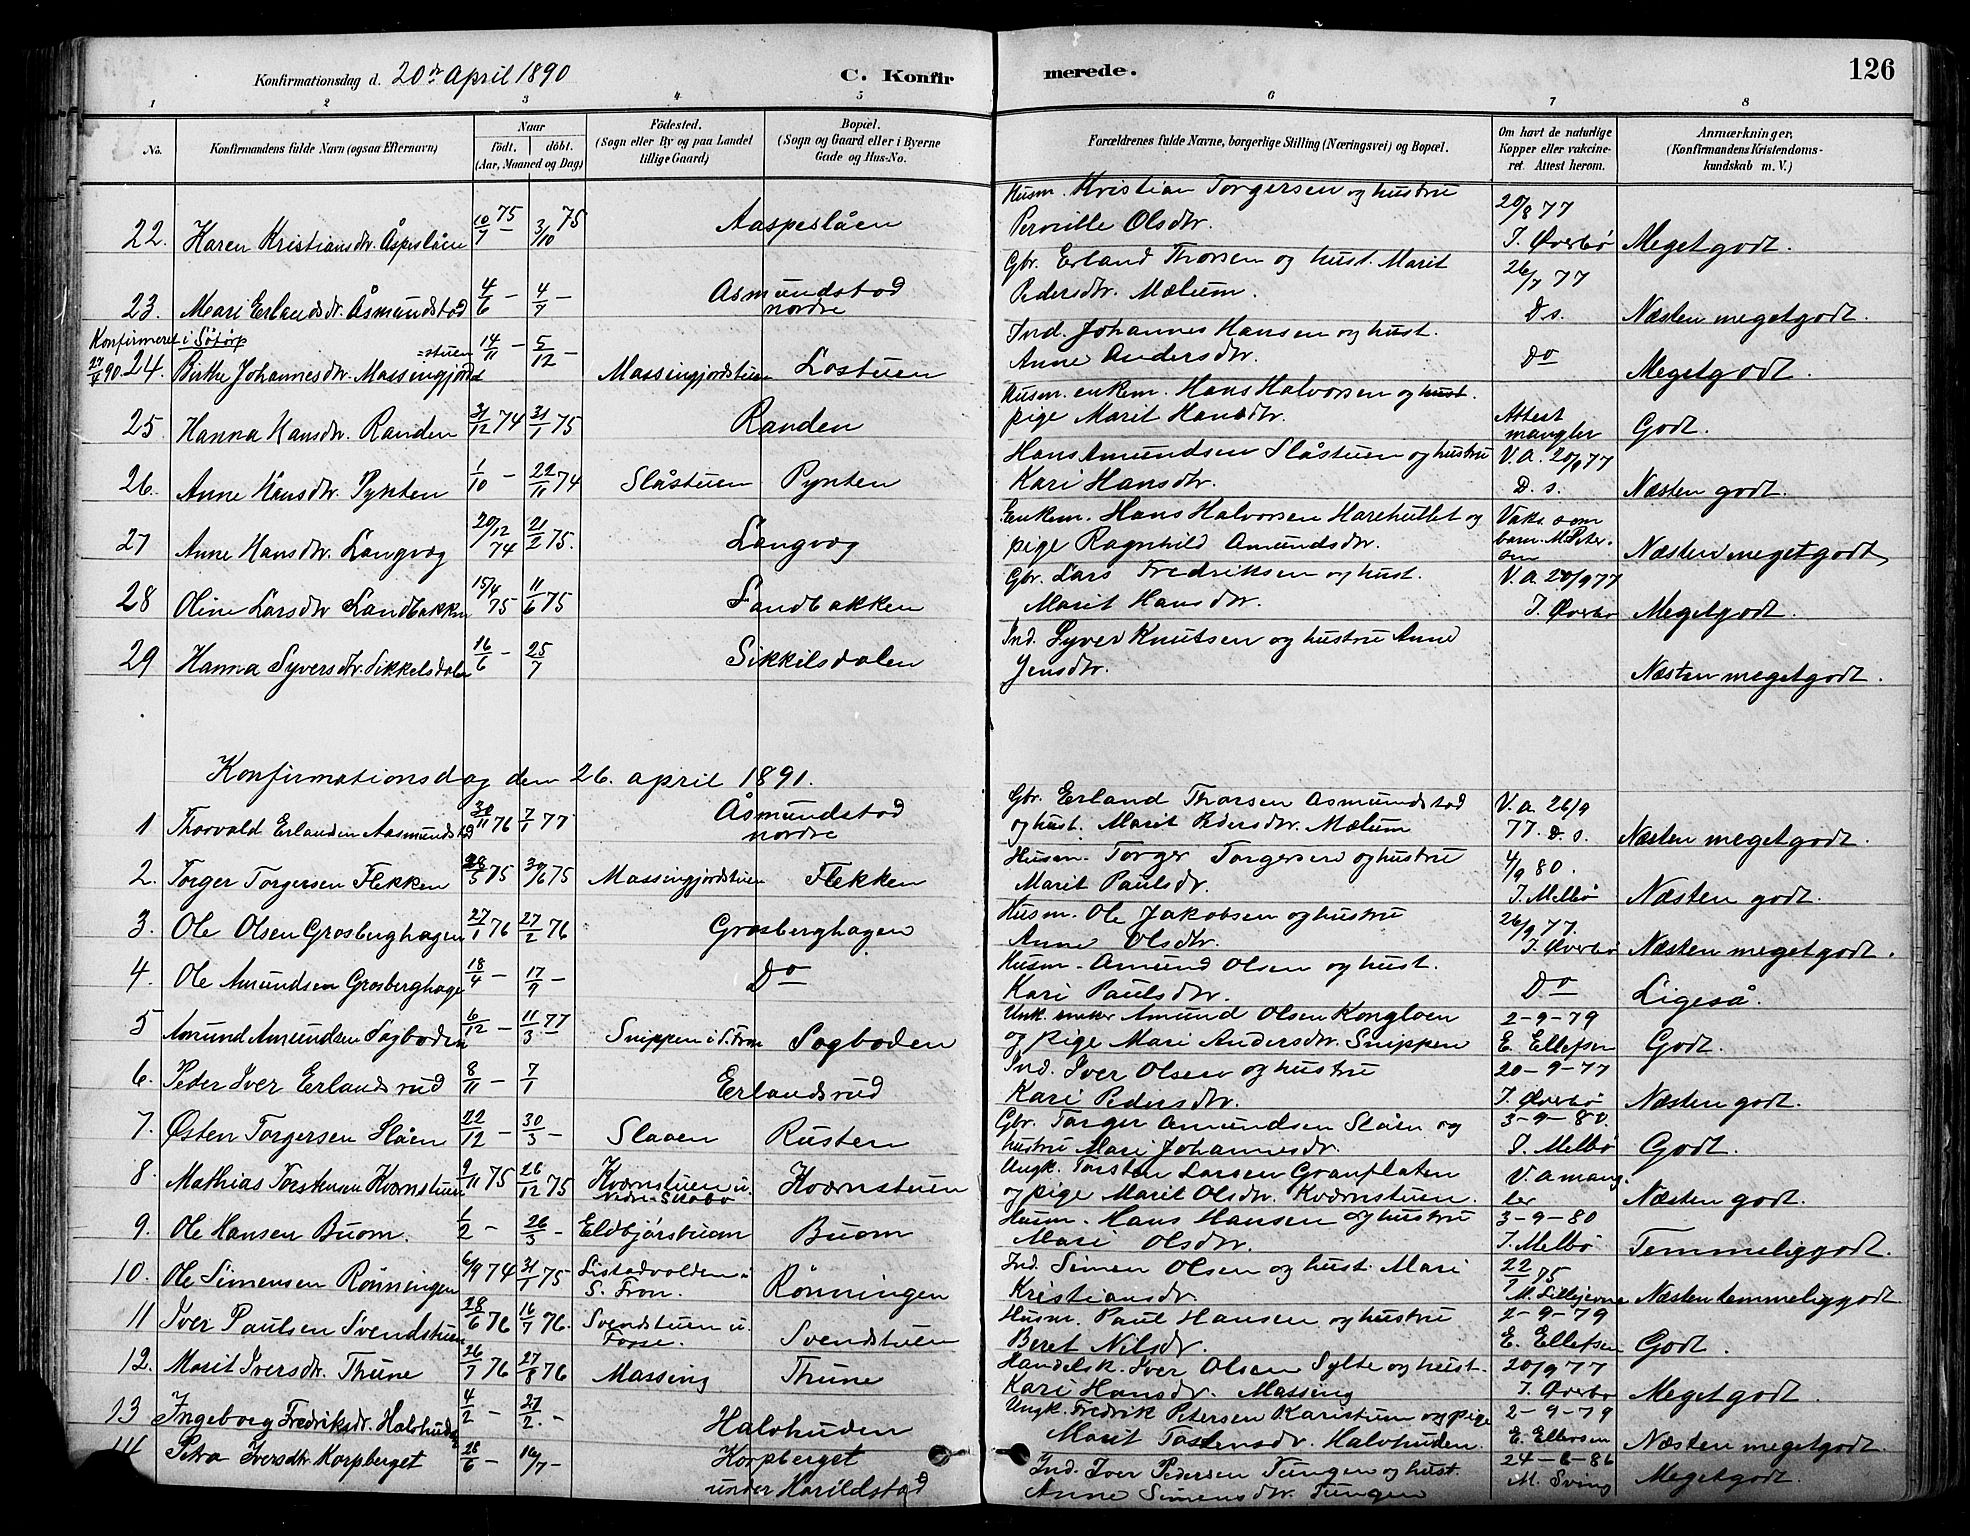 Konfirmationsdag d. 20de April 1890
C. Konfirmerede.
126
1 2 3 4 5 6 7 8
No.
Konfirmandens fulde Navn (ogsaa Efternavn)
Naar
födt. döbt.
(Aar, Maaned og Dag)
Födested.
(Sogn eller By og paa Landet
tillige Gaard)
Bopæl.
(Sogn og Gaard eller i Byerne
Gade og Hus-No.
Forældrenes fulde Navne, borgerlige Stilling (Næringsvei) og Bopæl.
Om havt de naturlige
Kopper eller vakcine-
ret. Attest herom.
Anmærkninger,
(Konfirmandens Kristendoms-
kundskab m. V.)
22. Karen Kristiansdtr. Åspeslåen 10/7 75 3/10 75 Aaspeslåen Husm. Kristian Torgersen og hustru
Pernille Olsdtr. 20/8 77 J. Øverbø Meget godt.
23. Mari Erlandsdr. Åsmundstad 4/6 – 4/7 – Åsmundstad nordre Gbr. Erland Thorsen og hust. Marit
Pedersdtr. Mælum. 26/7 77 D. s. Næsten meget godt.
Konfirmeret i Sötörp
27/4 90. 24. Birthe Johannesdtr. Massingjord =stuen 14/11 – 5/12 – Massingjordstuen Lostuen Ind. Johannes Hansen og hust.
Anne Andersdtr. Do Meget godt.
25. Hanna Hansdtr. Randen 31/12 74 31/1 75 Randen Husm. enkem. Hans Halvorsen og hust.
pige Marit Hansdtr. Attest mangler Godt.
26. Anne Hansdtr. Pynten 1/10 – 22/11 74 Slåstuen Pynten Hans Amundsen Slåstuen og hustru
Kari Hansdtr. V. A. 20/9 77 D. s. Næsten godt.
27 Anne Hansdtr. Langvæg 20/12 74 21/2 75. Langvæg Enkem. Hans Halvorsen Harehullet og
pige Ragnhild Amundsdtr. Vaks. som barn. Næsten meget godt
28 Oline Larsdtr Sandbakken 15/4 75 11/6 75 Sandbakken Gbr. Lars Fredriksen og hust.
Marit Hansdtr. V. A. 20/9 77 J. Øverbø Meget godt.
29 Hanna Syversdtr. Sikkelsdalen 16/6 – 25/7 Sikkilsdalen Ind. Syver Knutsen og hustru Anne
Jensdtr. Næsten meget godt.
Konfirmationsdag den 26. april 1891.
1 Thorvald Erlandsen Aasmundstad 30/11 76 7/1 77 Åsmundstad nordre Gbr. Erland Thorsen Åsmundstad
og hust. Marit Pedersdtr. Mælum V. A. 26/9 77. D. s. Næsten meget godt.
2. Torger Torgersen Flekken 28/5 75 30/6 75 Massingjordstuen Flekken Husm. Torger Torgersen og hustru
Marit Paulsdr. 4/9 80. J. Melbö Næsten godt.
3. Ole Olsen Grosberghagen 27/1 76 27/2 76 Grosberghagen Husm. Ole Jakobsen og hustru
Anne Olsdtr. 26/9 77. J. Øverbø Næsten meget godt.
4. Ole Amundsen Grosberghage 18/4 – 17/7 – Do Husm. Amund Olsen og hust.
Kari Paulsdtr. Do Ligeså.
5 Amund Amundsen Sagboden 6/12 – 11/3 77 Snippen i S. Fron Sagboden Amund Olsen Kongloen
og pige Mari Andersdtr. Snippen 2-9-79 E. Ellefsen Godt.
6. Peder Iver Erlandsrud 8/11 – 7/1 Erlandsrud Ind. Iver Olsen og hustru
Kari Pedersdtr. 20-9-77 J. Øverbø Næsten godt.
7. Østen Torgersen Slåen 22/12 – 30/3 – Slaaen Rusten Gbr. Torger Amundsen Slåen og
hustru Mari Johannesdr. 3-9-80. J. Melbø Godt.
8. Mathias Torstensen Kværnstuen 9/11 75 26/12 75 Kværnstuen u. Kværnstuen Ungk. Torsten Larsen Granflaten
og pige Marit Olsdtr. Kværnstuen. V. A mangler Næsten godt.
9. Ole Hansen Buom. 1/2 – 26/3 – Eldbjørstuen Buom Husm. Hans Hansen og hustru
Mari Olsdtr. 3-9-80 J. Melbø Temmelig godt.
10. Ole Simensen Rønningen 6/9 74 31/1 75 Listadvolden i S. Fron. Rönningen Ind. Simen Olsen og hust. Mari
Kristiansdr. 22/7 75 Næsten temmelig godt
11 Iver Paulsen Svendstuen 28/6 76 16/7 76. Svendstuen u. Forse. Svendstuen Husm. Paul Hansen og hustru
Beret Nilsdr. 2-9-79 E. Ellefsen Godt.
12. Marit Iversdtr. Thune 26/7 76 27/8 76 Massing Thune Handelsk. Iver Olsen Sylte og hust.
Kari Hansdtr. Massing 20/9 77 J. Øverbø Meget godt.
13 Ingeborg Fredriksdr. Halvhuden 4/2 – 27/2. – Halvhuden Ungk. Fredrik Petersen Karistuen og pige
Marit Tostensdr. Halvhuden. 2-9-79 E. Ellefsen Næsten meget godt.
14 Petra Iversdtr. Korpberget 28/6 – 16/7 – Korpberget under Harildstad Ind. Iver Pedersen Tungen og hust.
Anne Simensdtr. Tungen 24-6-86 M. Sving Meget godt.